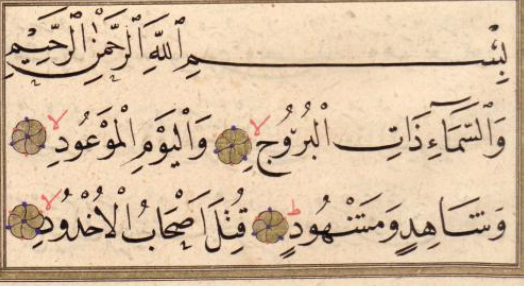 بِسْمِ اللَّهِ الرَّحْمَٰنِ الرَّحِيمِ
وَالسَّمَاءِ ذَاتِ الْبُرُوجِ ۙ وَالْيَوْمِ الْمَوْعُودِ ۙ
وَشَاهِدٍ وَمَشْهُودٍ ۗ قُتِلَ اَصْحَابُ الْاُخْدُودِ ۙ